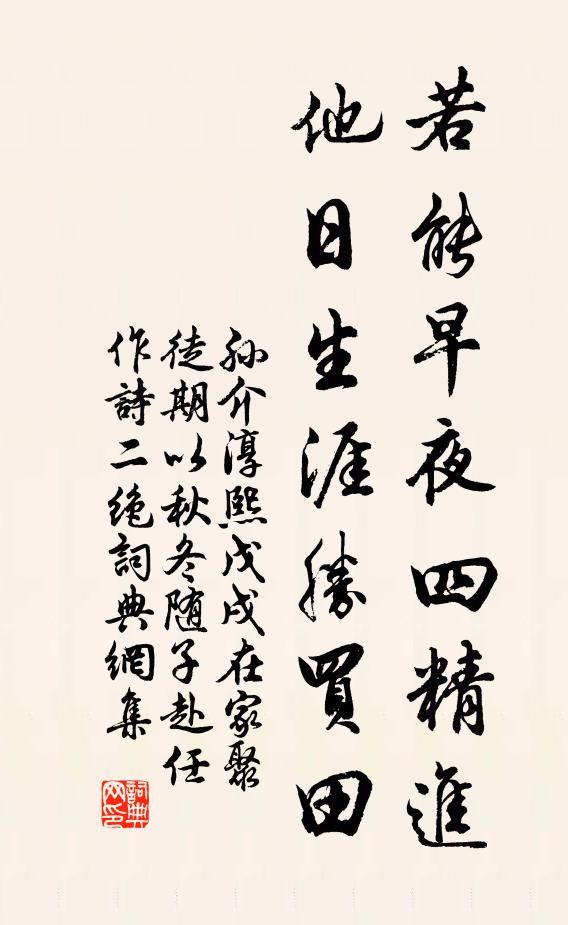 若能早夜四精進
他日生涯勝買田
孙介淳熙戊戌在家聚
徒期以秋冬随子赴任
作詩二绝詞典網集
詞典网印